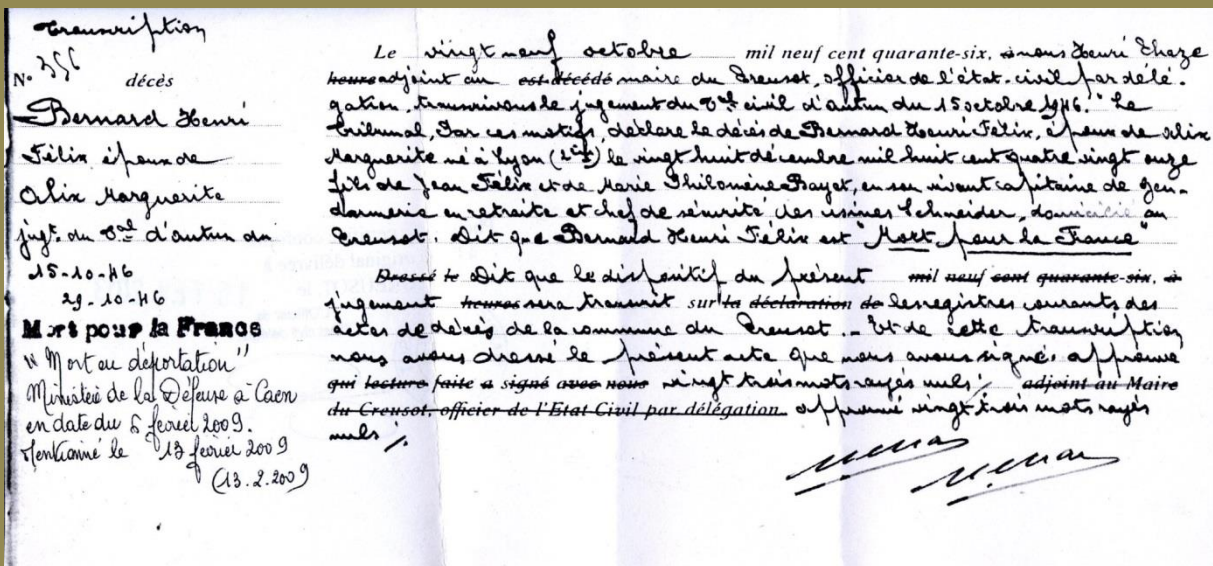 Transcription
N° 356 décès
Bernard Henri
Félix époux de
Alix Marguerite
jugt. du Tral d'autun du
15-10-46
29-10-46
Mort pour la France
"Mort en déportation"
Ministère de la Défense à Caen
en date du 6 février 2009.
Mentionné le 13 février 2009
(13.2.2009)
Le vingt neuf octobre mil neuf cent quarante-six, à nous Henri
heures adjoint au est décédé maire du Creusot, officier de l'état-civil par délé-
gation, transcrivons le jugement du Tral civil d'autun du 15 octobre 1946. "Le
Tribunal, Par ces motifs, déclare le décès de Bernard Henri Félix, époux de Alix
Marguerite né à Lyon (2è) le vingt huit décembre mil huit cent quatre vingt onze
fils de Jean Félix et de Marie Philomène Bayet, en son vivant capitaine de gen-
darmerie en retraite et chef de sécurité des usines Schneider, domicilié au
Creusot. Dit que Bernard Henri Félix est "Mort pour la France"
Dressé le Dit que le dispositif du présent mil neuf cent quarante-six, à
jugement heures sera transcrit sur la déclaration de les registres courants des
actes de décès de la commune du Creusot. - Et de cette transcription
nous avons dressé le présent acte que nous avons signé, approuvé
qui lecture faite a signé avec nous vingt trois mots rayés nuls. adjoint au Maire
du Creusot, officier de l'Etat Civil par délégation. approuvé vingt trois mots rayés
nuls